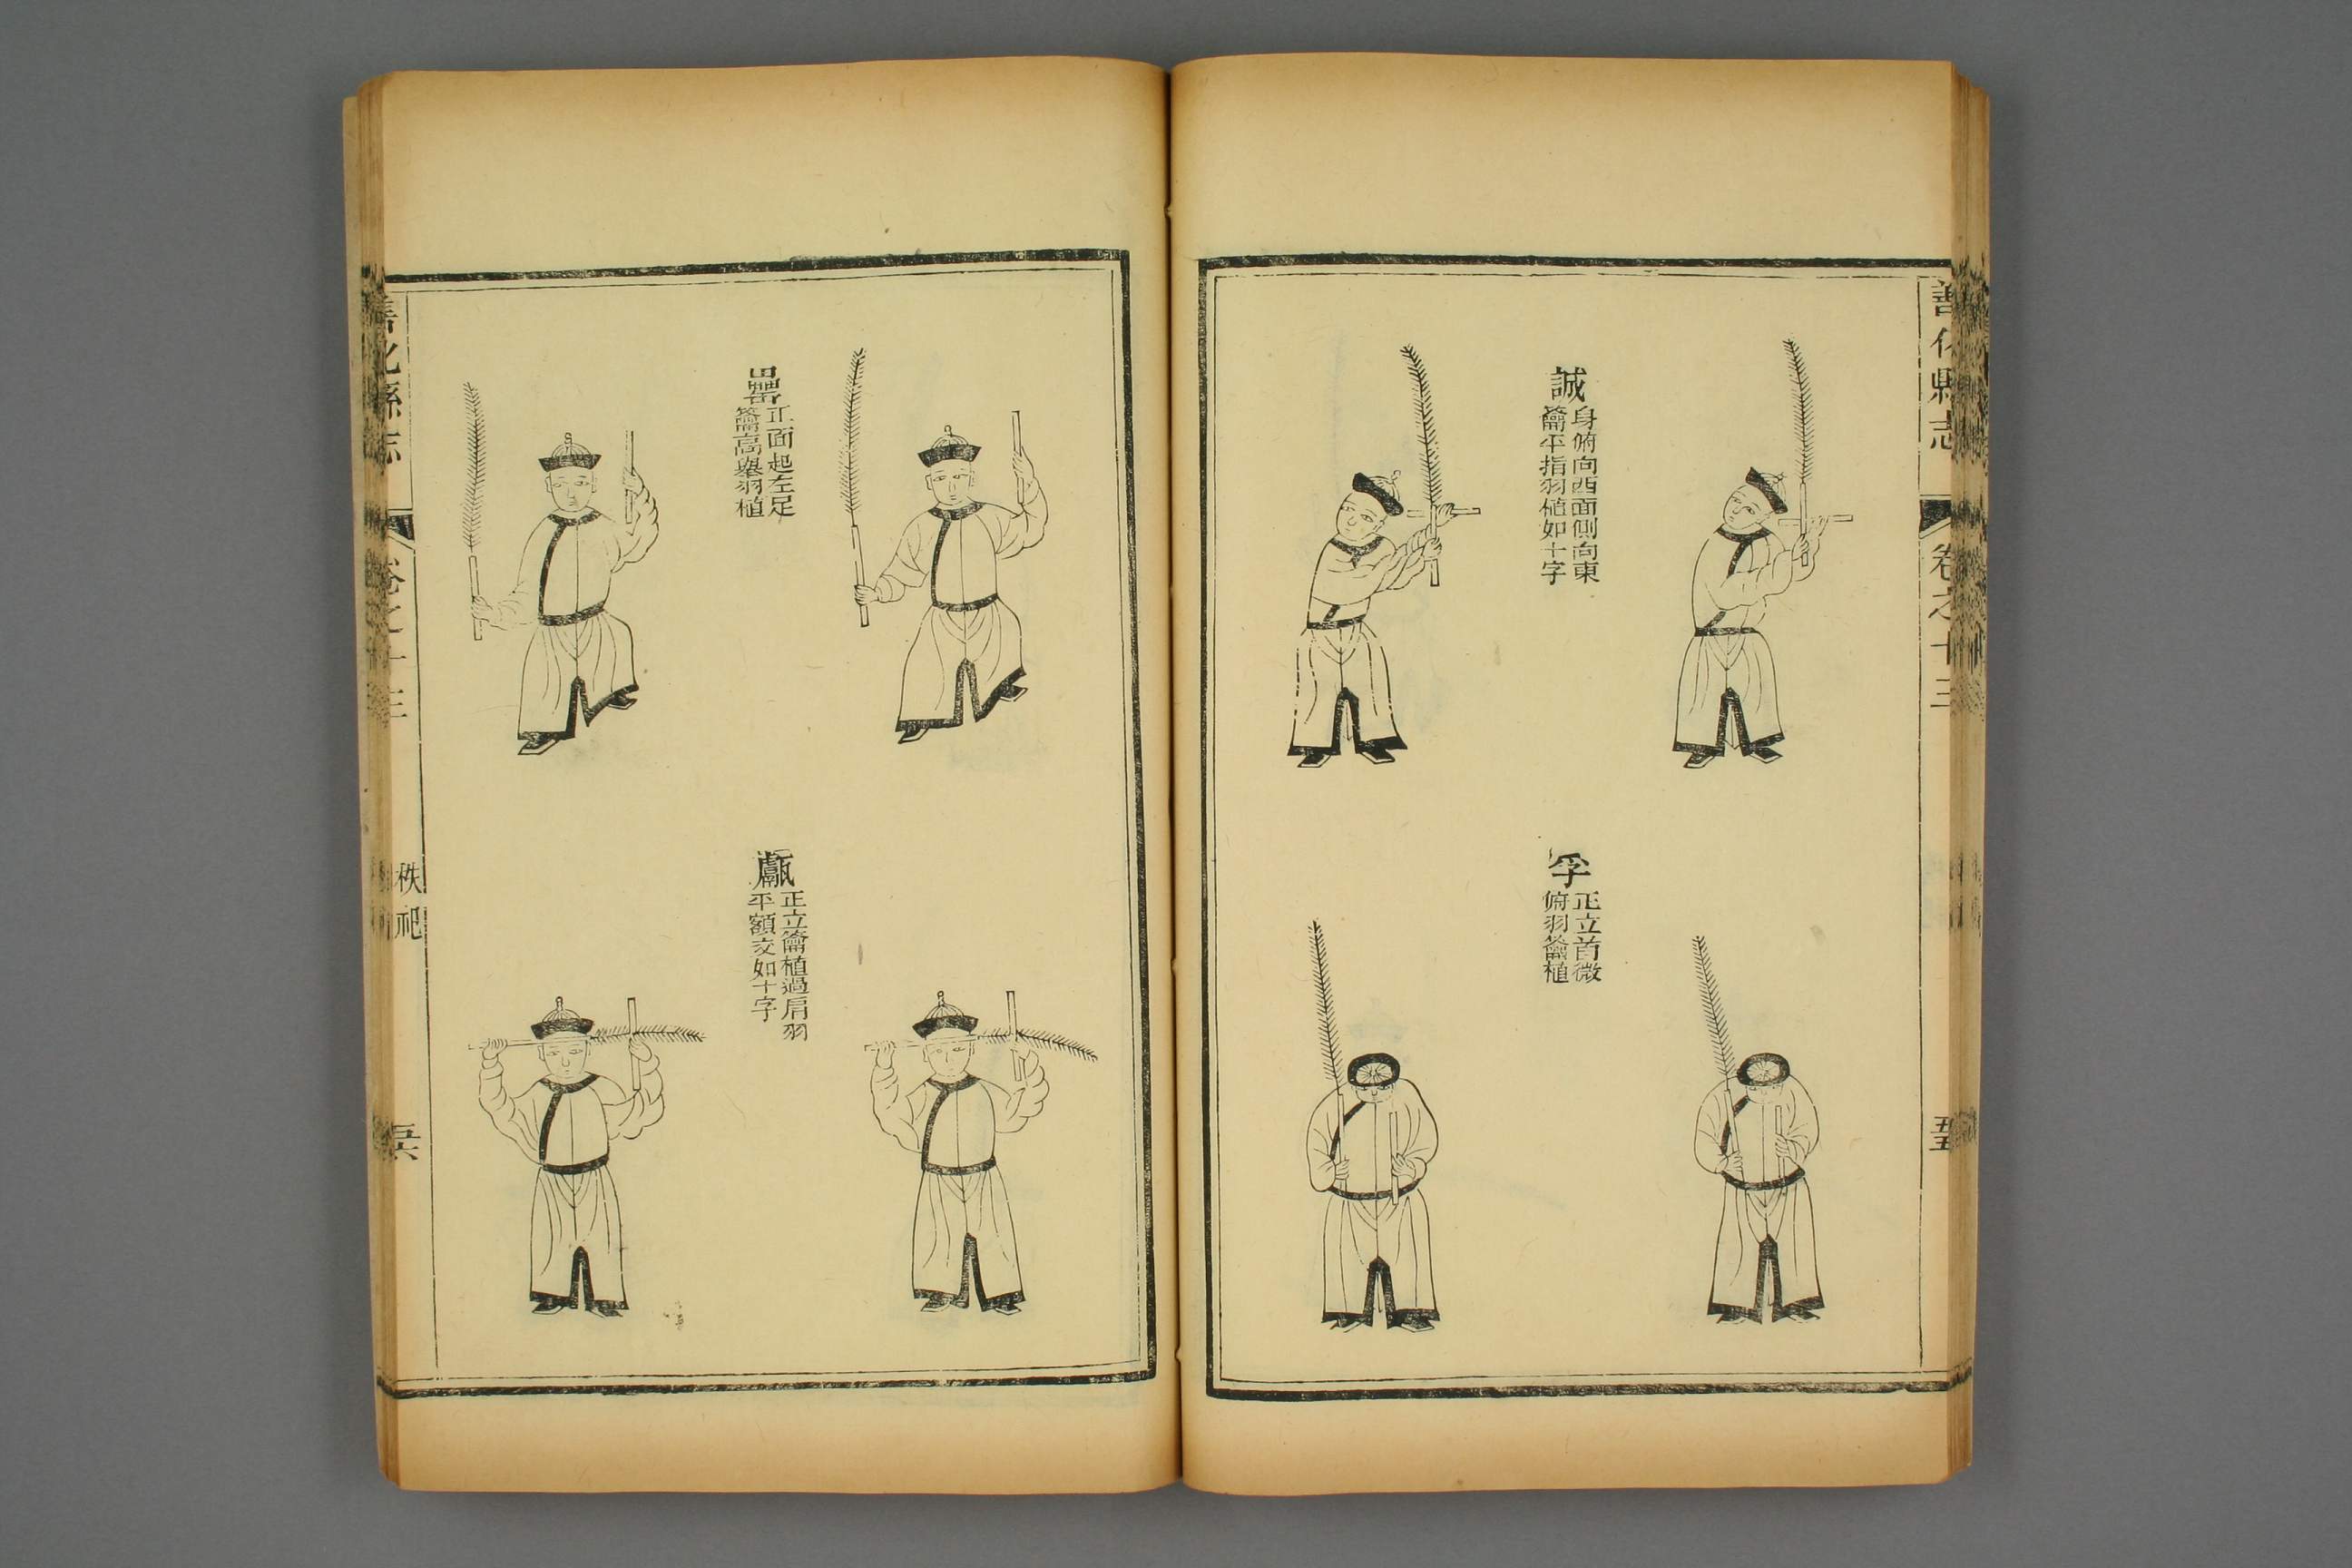 善化縣志
卷之十三
五五
誠
身俯向西面側向東
籥平指羽植如十字
孚
正立首微
俯羽籥植
罍
正面起左足
籥高舉羽植
甗
正立籥植過肩羽
平額交如十字
善化縣志
卷之十三
秩祀
五六